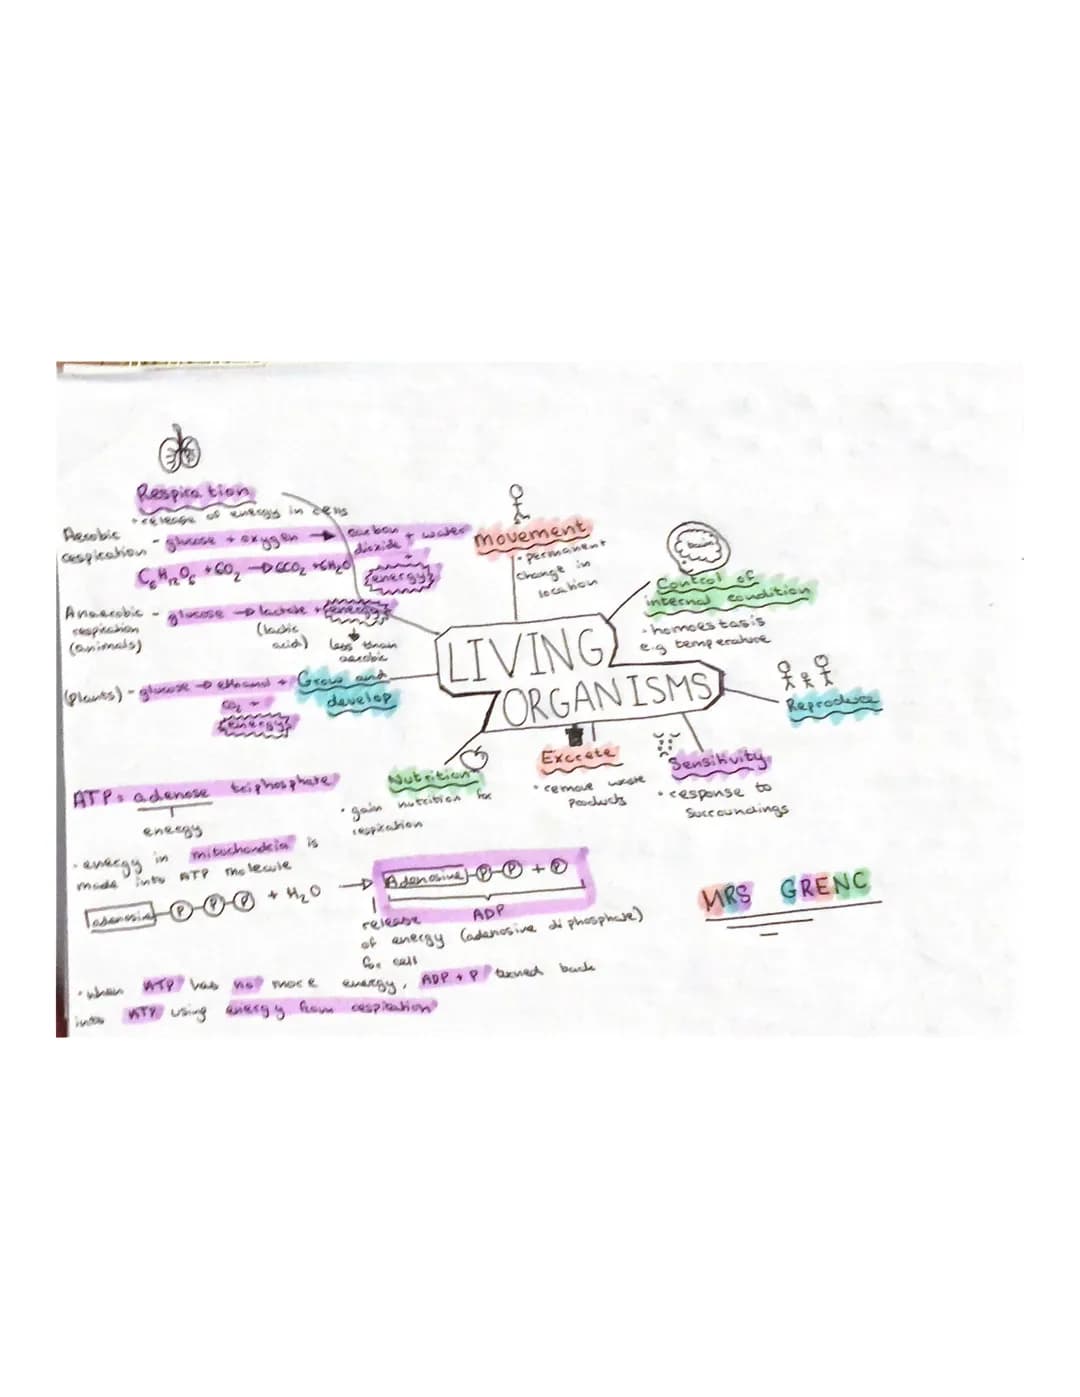 Respiration
• release of energy in cells
Aerobic
respiration
- glucose + oxygen → carbon
dioxide + water
+
energy
C6H12O6 + 6O2 → 6CO2 + 6H2O
Anaerobic
respiration
(animals)
- glucose → lactate + energy
(lactic
acid)
less than
aerobic
(Plants) - glucose → ethanol +
CO2 +
energy
Grow and
develop
movement
• permanent
change in
location
brain
Control of
internal condition
• homoestasis
e.g temperature
LIVING
ORGANISMS
Reproduce
Sensitivity
• response to
surroundings
Excrete
• remove waste
products
Nutrition
• gain nutrition for
respiration
ATP = adenose triphosphate
energy
• energy in mitochondria is
made into ATP molecule
adenosine P P P + H2O →
Adenosine P P + P
release
of energy
for cell
ADP
(adenosine di phosphate)
• when ATP has no more energy, ADP + P turned back
into ATP using energy from respiration
MRS GRENC